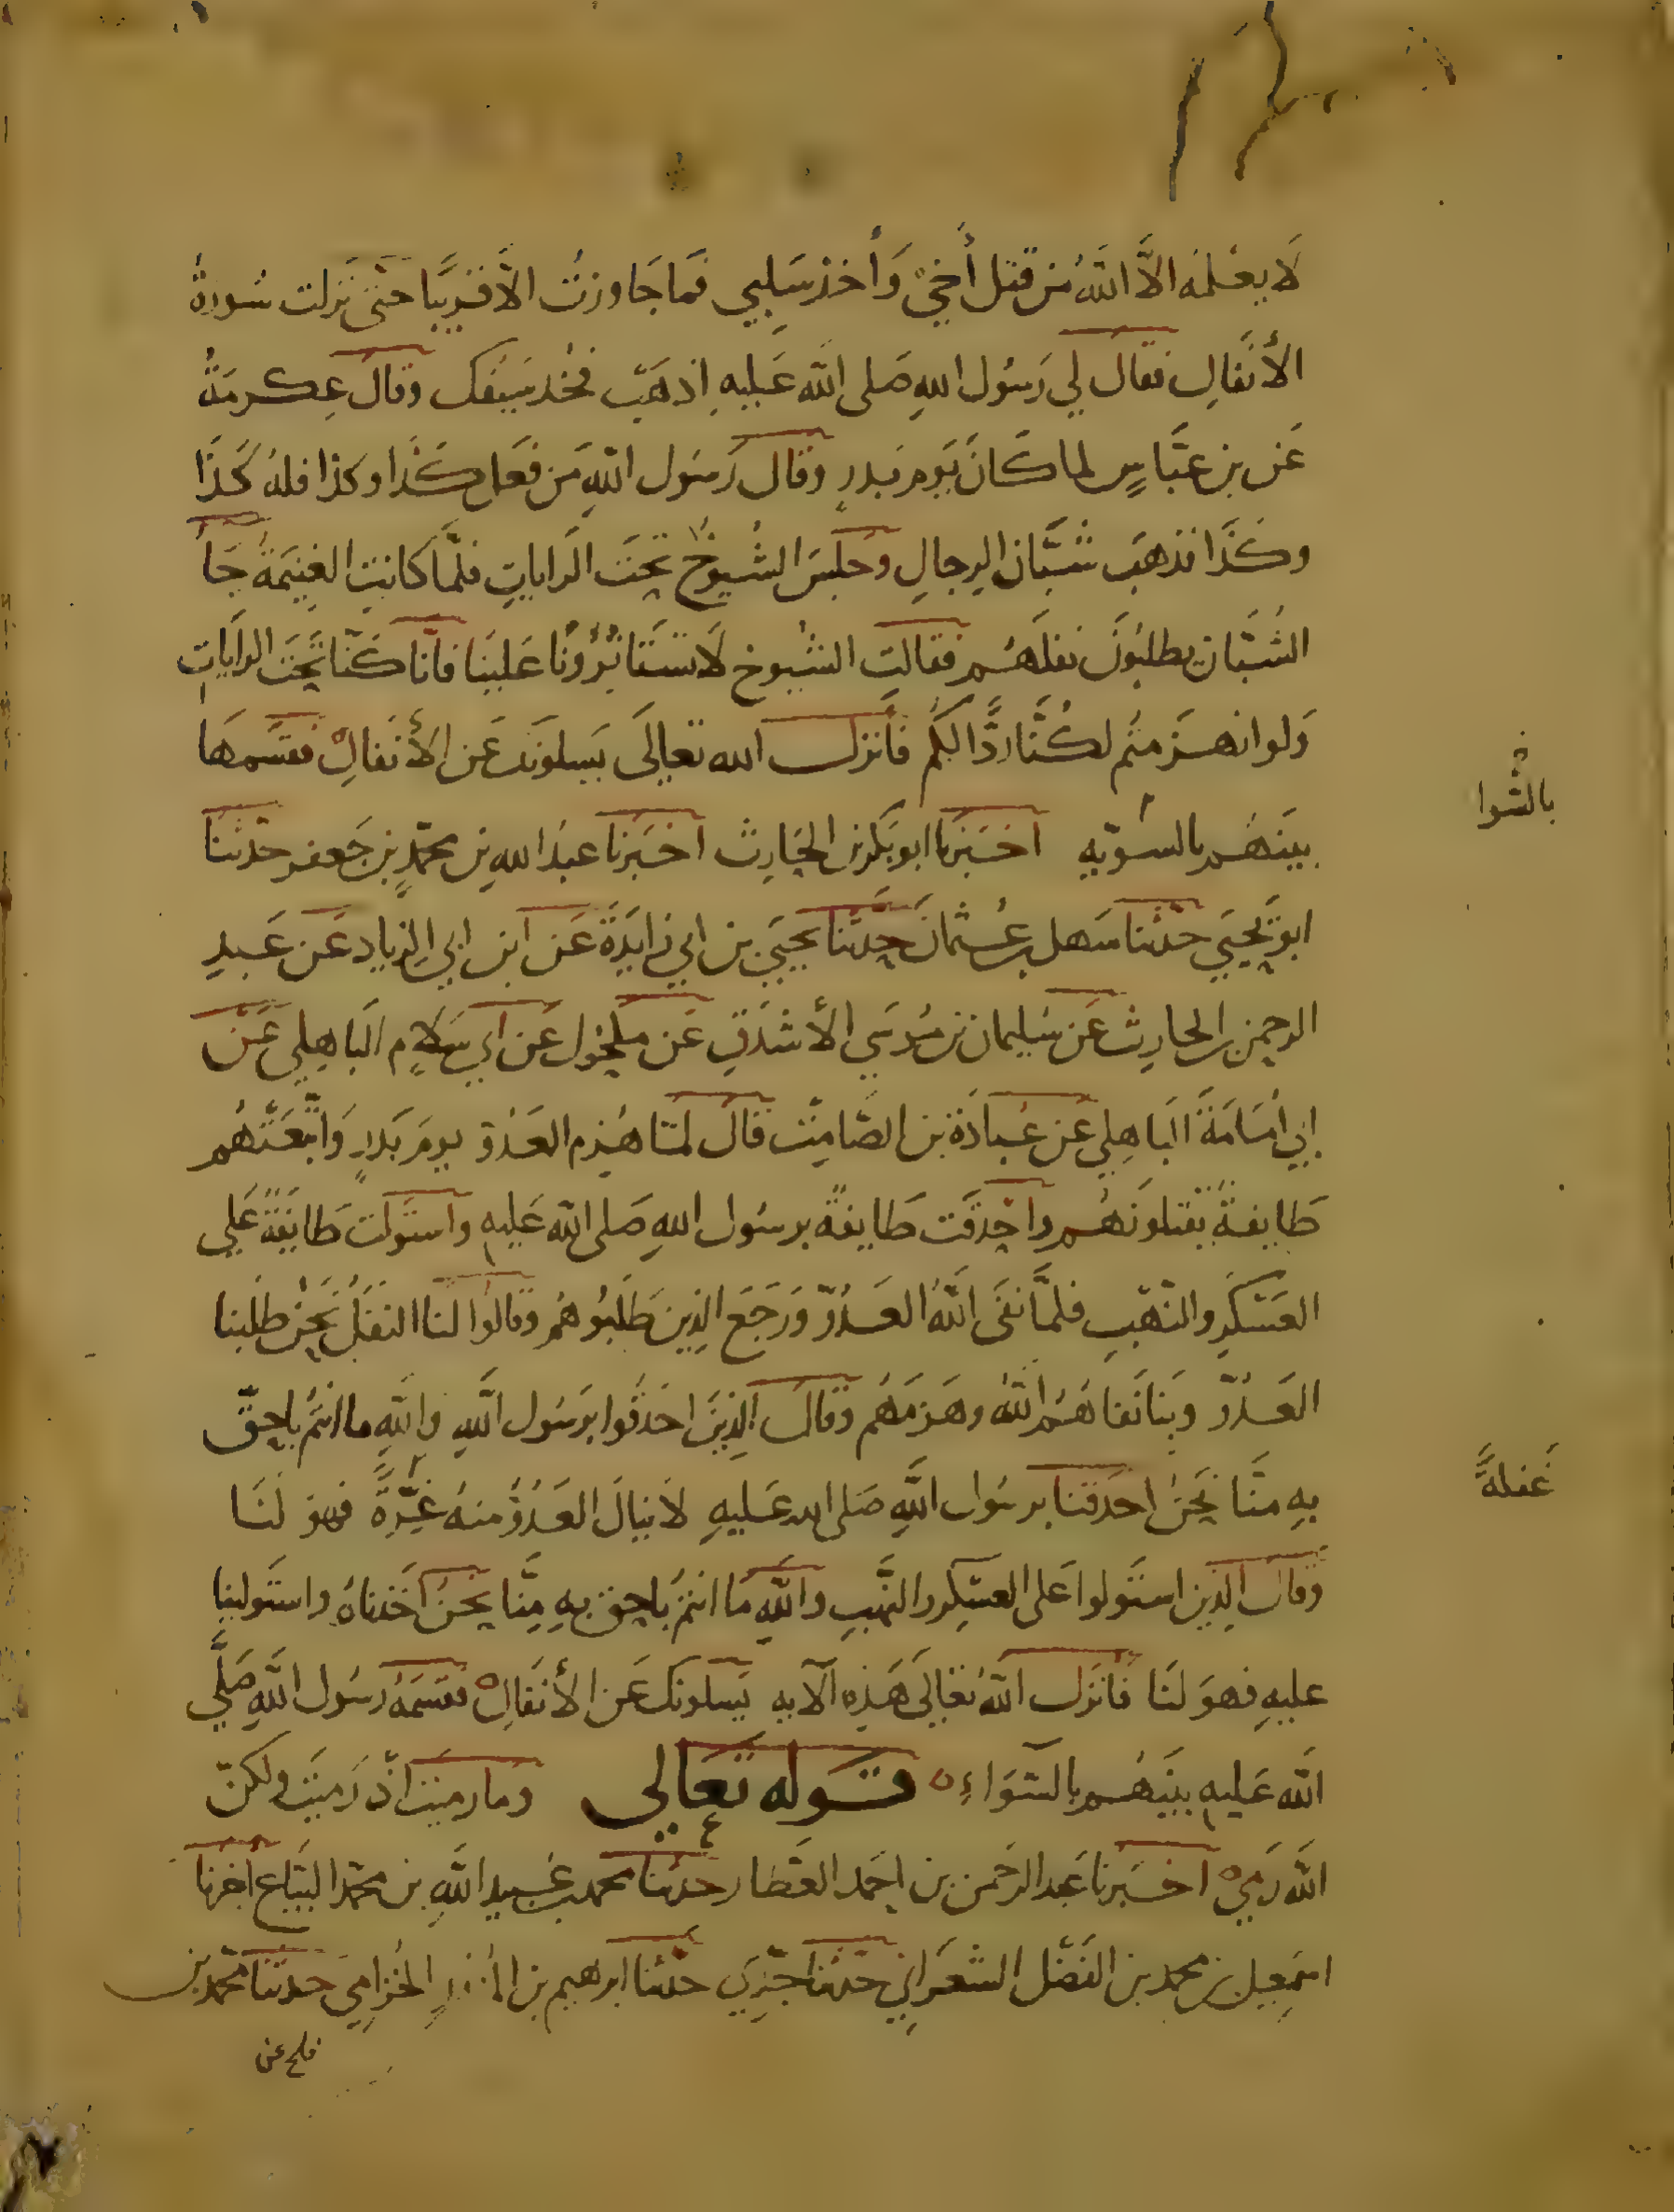 لَا يعْلمُه الاَّ اللَّهُ من قتل أَخِيْ وَأخذِ سَلِبي فَما جَاوزتُ الاَّ قريبًا حتى نَزلت سُورةُ
الأنفَالِ فقال لي رَسُول اللهِ صَلى اللّه عَليهِ اذهَبْ فخُذ سَيفك وقالَ عِكرمَةُ
عَن بن عبَّاسٍ لما كَانَ يَوم بَدرٍ وقال رَسُول اللّهِ مَن فَعَل كَذَا وكذا فلهُ كَذَا
وكَذَا فذهبَ شبَّان الرِجالِ وَجلسَ الشُيوخُ تحتَ الرَاياتِ فلمَّا كانتِ الغنِيمَةُ جَا
الشُبَّان يطلبُونَ نفلَهُم فقالتِ الشيُوخ لَا تستَاثرُونا عَلينَا فانَّا كنَّا تَحتَ الرايَاتِ
وَلو انهزمتُم لكُنَّا ردًّا لكُم فَأنزل الله تعالَى يَسلونَك عَن الأنفالِ فقسَّمهَا
بينَهُم بالسوّيه اخبَرنا ابو بَكر بن الحَارِث اخبَرنا عبدُ اللهِ بن محمّدِ بن جَعفر حدّثنَا
ابو يَحيَي حدّثنا سَهل بن عُثمانَ حدّثنا يحيَي بن ابي زايدَةَ عَن ابن ابي الزياد عَن عَبدِ
الرحمن بن الحارِث عَن سُليمان بن مُوسَي الأشدَقِ عَن مكحُول عَن ابي سَلامٍ البَاهِلي عَن
ابي أمَامَةَ البَاهِلي عَن عُبادَة بن الصّامِتْ قالَ لمّا هُزم العَدُوّ يومَ بَدرٍ وَاتّبعَتْهُم
طَايفةٌ يقتلونَهُم واحْدقَت طَايفةٌ برسُول اللهِ صَلى اللّه عَليهِ واستولت طَايَفةٌ عَلي
العَسْكرِ والنّهْبِ فلمَّا نفَى اللَّهُ العَدُوّ وَرَجَعَ الذِين طَلَبُوهُم وقالوا لنا النفَلُ نَحنُ طلَبنا
العَدُوّ وبنا نَفاهُمُ اللّهُ وهَزمَهُم وقال الذِينَ احَدقُوا برَسُول اللّهِ واللّهِ ما انتُم باحقّ
بهِ منَّا نَحنُ احدَقنا برسُول اللَّهِ صَلى الله عَليهِ لا ينالَ العَدُوُّ منهُ غِرَّةً فهو لَنَا
وَقال الذِين استَولوا عَلى العسْكِر والنّهبِ واللّهِ مَا انتمُ باحق بهِ مِنَّا نحنُ أخذناهُ واستَولينا
عليهِ فهوَ لنَا فَانزل اللّهُ تعَالَى هَذِه الآيه يَسلونَك عَن الأنفَالِ فقسَمَهُ رَسُول اللَّهِ صَلَّي
اللّه عَليهِ بينَهُم بالسّوَاءِ قوله تعَالي وَما رمَيتَ اذْ رَميَتَ ولكنّ
اللّه رَمي اخبَرنا عَبد الرَحمن بن احمَد العَطَّار حدثنا محمد بن عُبيد اللَّهِ بن محمّد البيّاع أخبرنا
اسمَعِيل بن محمد بن الفَضْل الشعرَاني حَدّثنا جدّي حدّثنا ابرهيم بن المنذرِ الخُزامي حدثنا محمّد بن
فلح عن
بالسّوا
غَفلةً